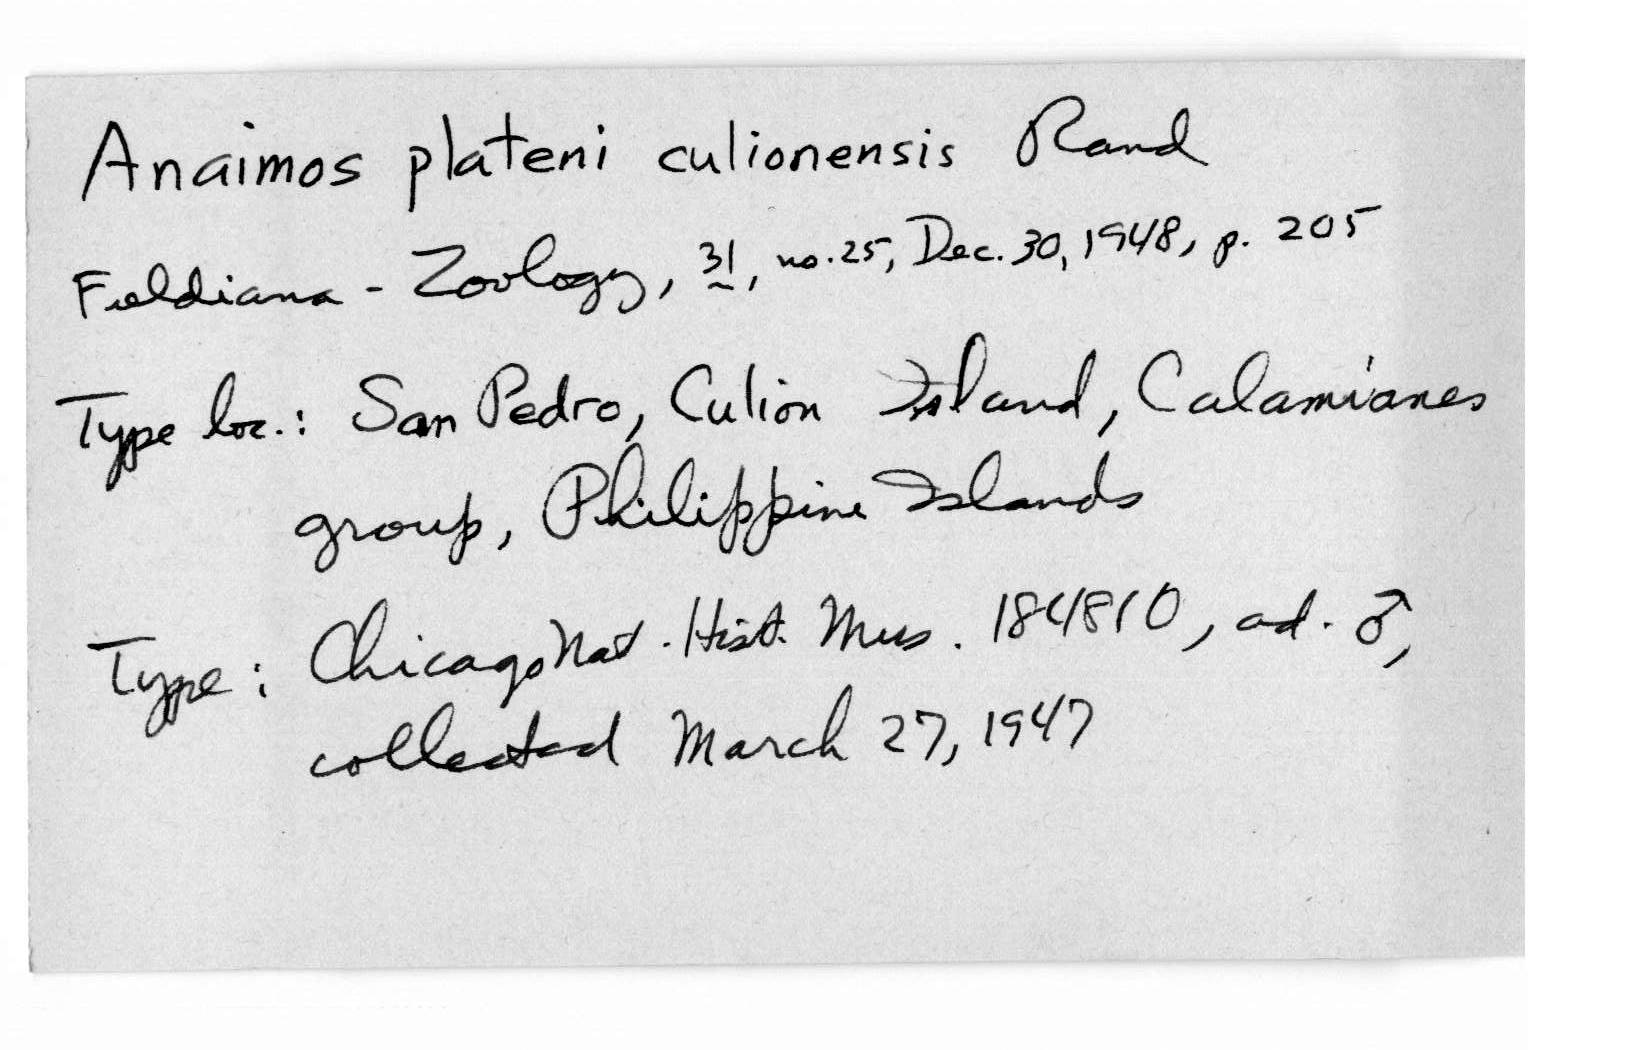 Anaimos plateni culionensis Rand
Fieldiana - Zoology, 31, no. 25, Dec. 30, 1948, p. 205
Type loc.: San Pedro, Culion Island, Calamianes
group, Philippine Islands
Type: Chicago Nat. Hist. Mus. 184810, ad. ♂,
collected March 27, 1947